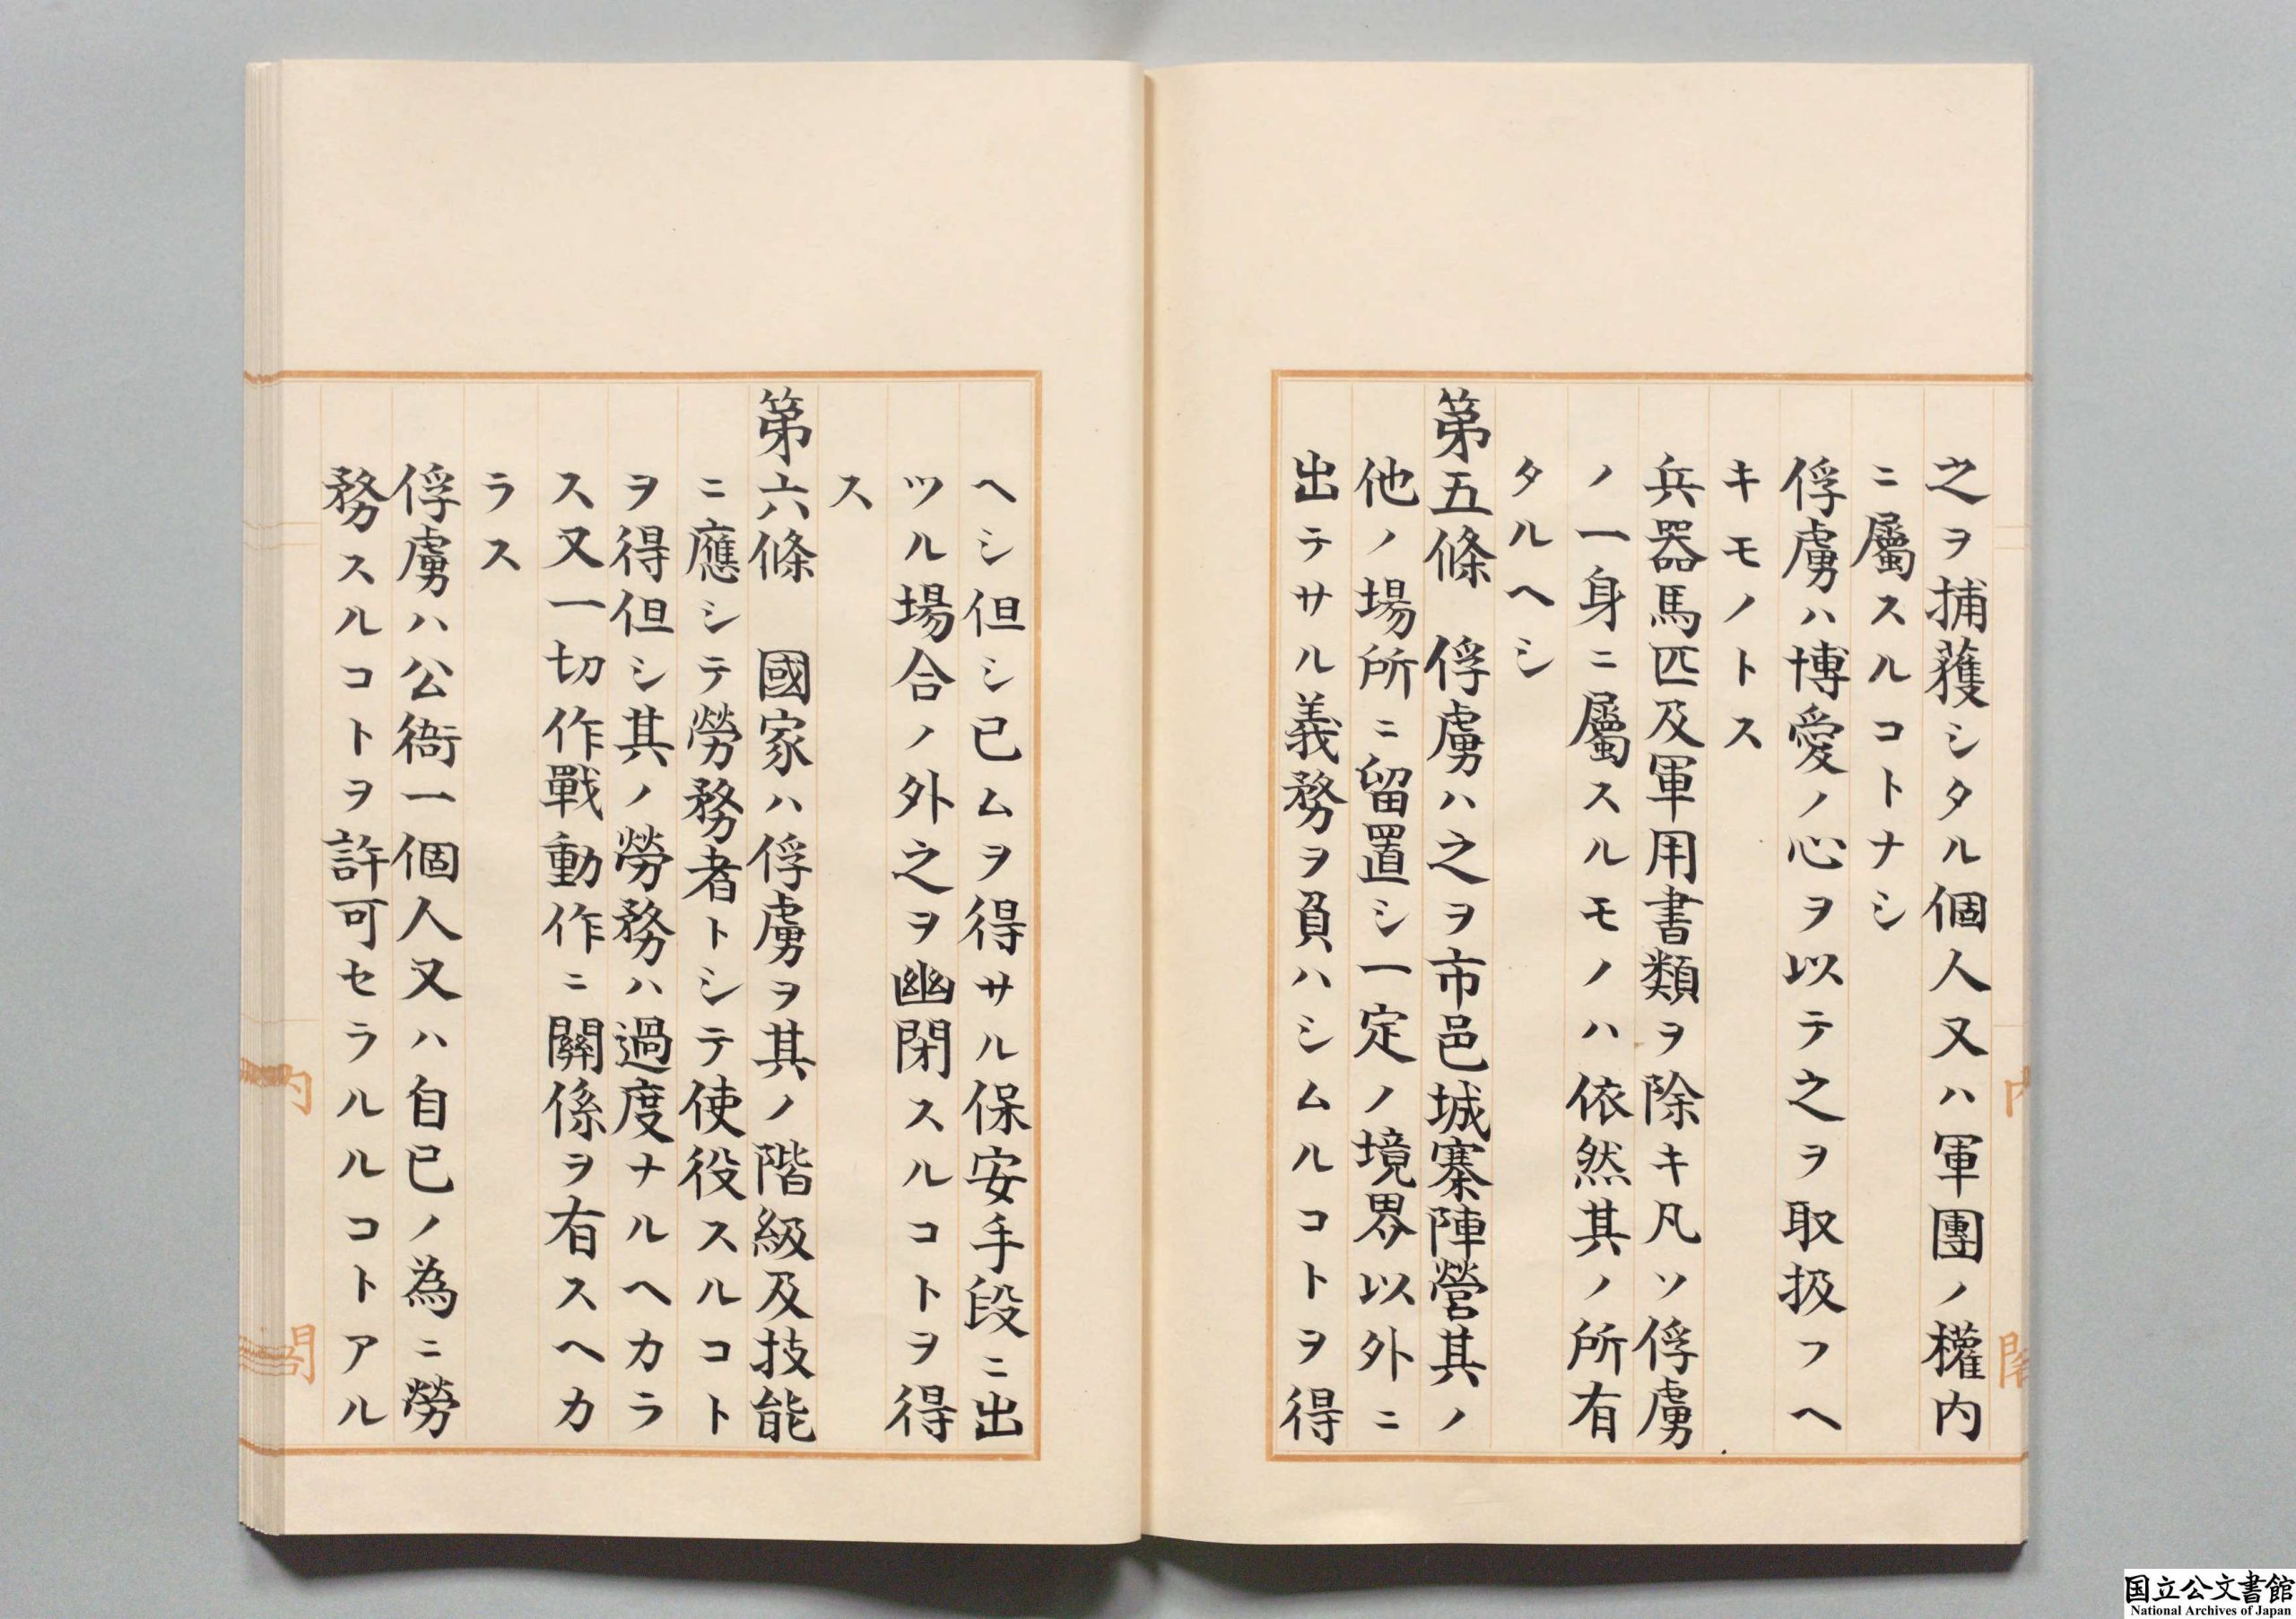 之ヲ捕獲シタル個人又ハ軍團ノ權内
ニ屬スルコトナシ
俘虜ハ博愛ノ心ヲ以テ之ヲ取扱フヘ
キモノトス
兵器馬匹及軍用書類ヲ除キ凡ソ俘虜
ノ一身ニ屬スルモノハ依然其ノ所有
タルヘシ
第五條　俘虜ハ之ヲ市邑城寨陣營其ノ
他ノ場所ニ留置シ一定ノ境界以外ニ
出テサル義務ヲ負ハシムルコトヲ得
ヘシ但シ已ムヲ得サル保安手段ニ出
ツル場合ノ外之ヲ幽閉スルコトヲ得
ス
第六條　國家ハ俘虜ヲ其ノ階級及技能
ニ應シテ勞務者トシテ使役スルコト
ヲ得但シ其ノ勞務ハ過度ナルヘカラ
ス又一切作戰動作ニ關係ヲ有スヘカ
ラス
俘虜ハ公衙一個人又ハ自己ノ為ニ勞
務スルコトヲ許可セラルルコトアル
内閣
内閣
国立公文書館
National Archives of Japan